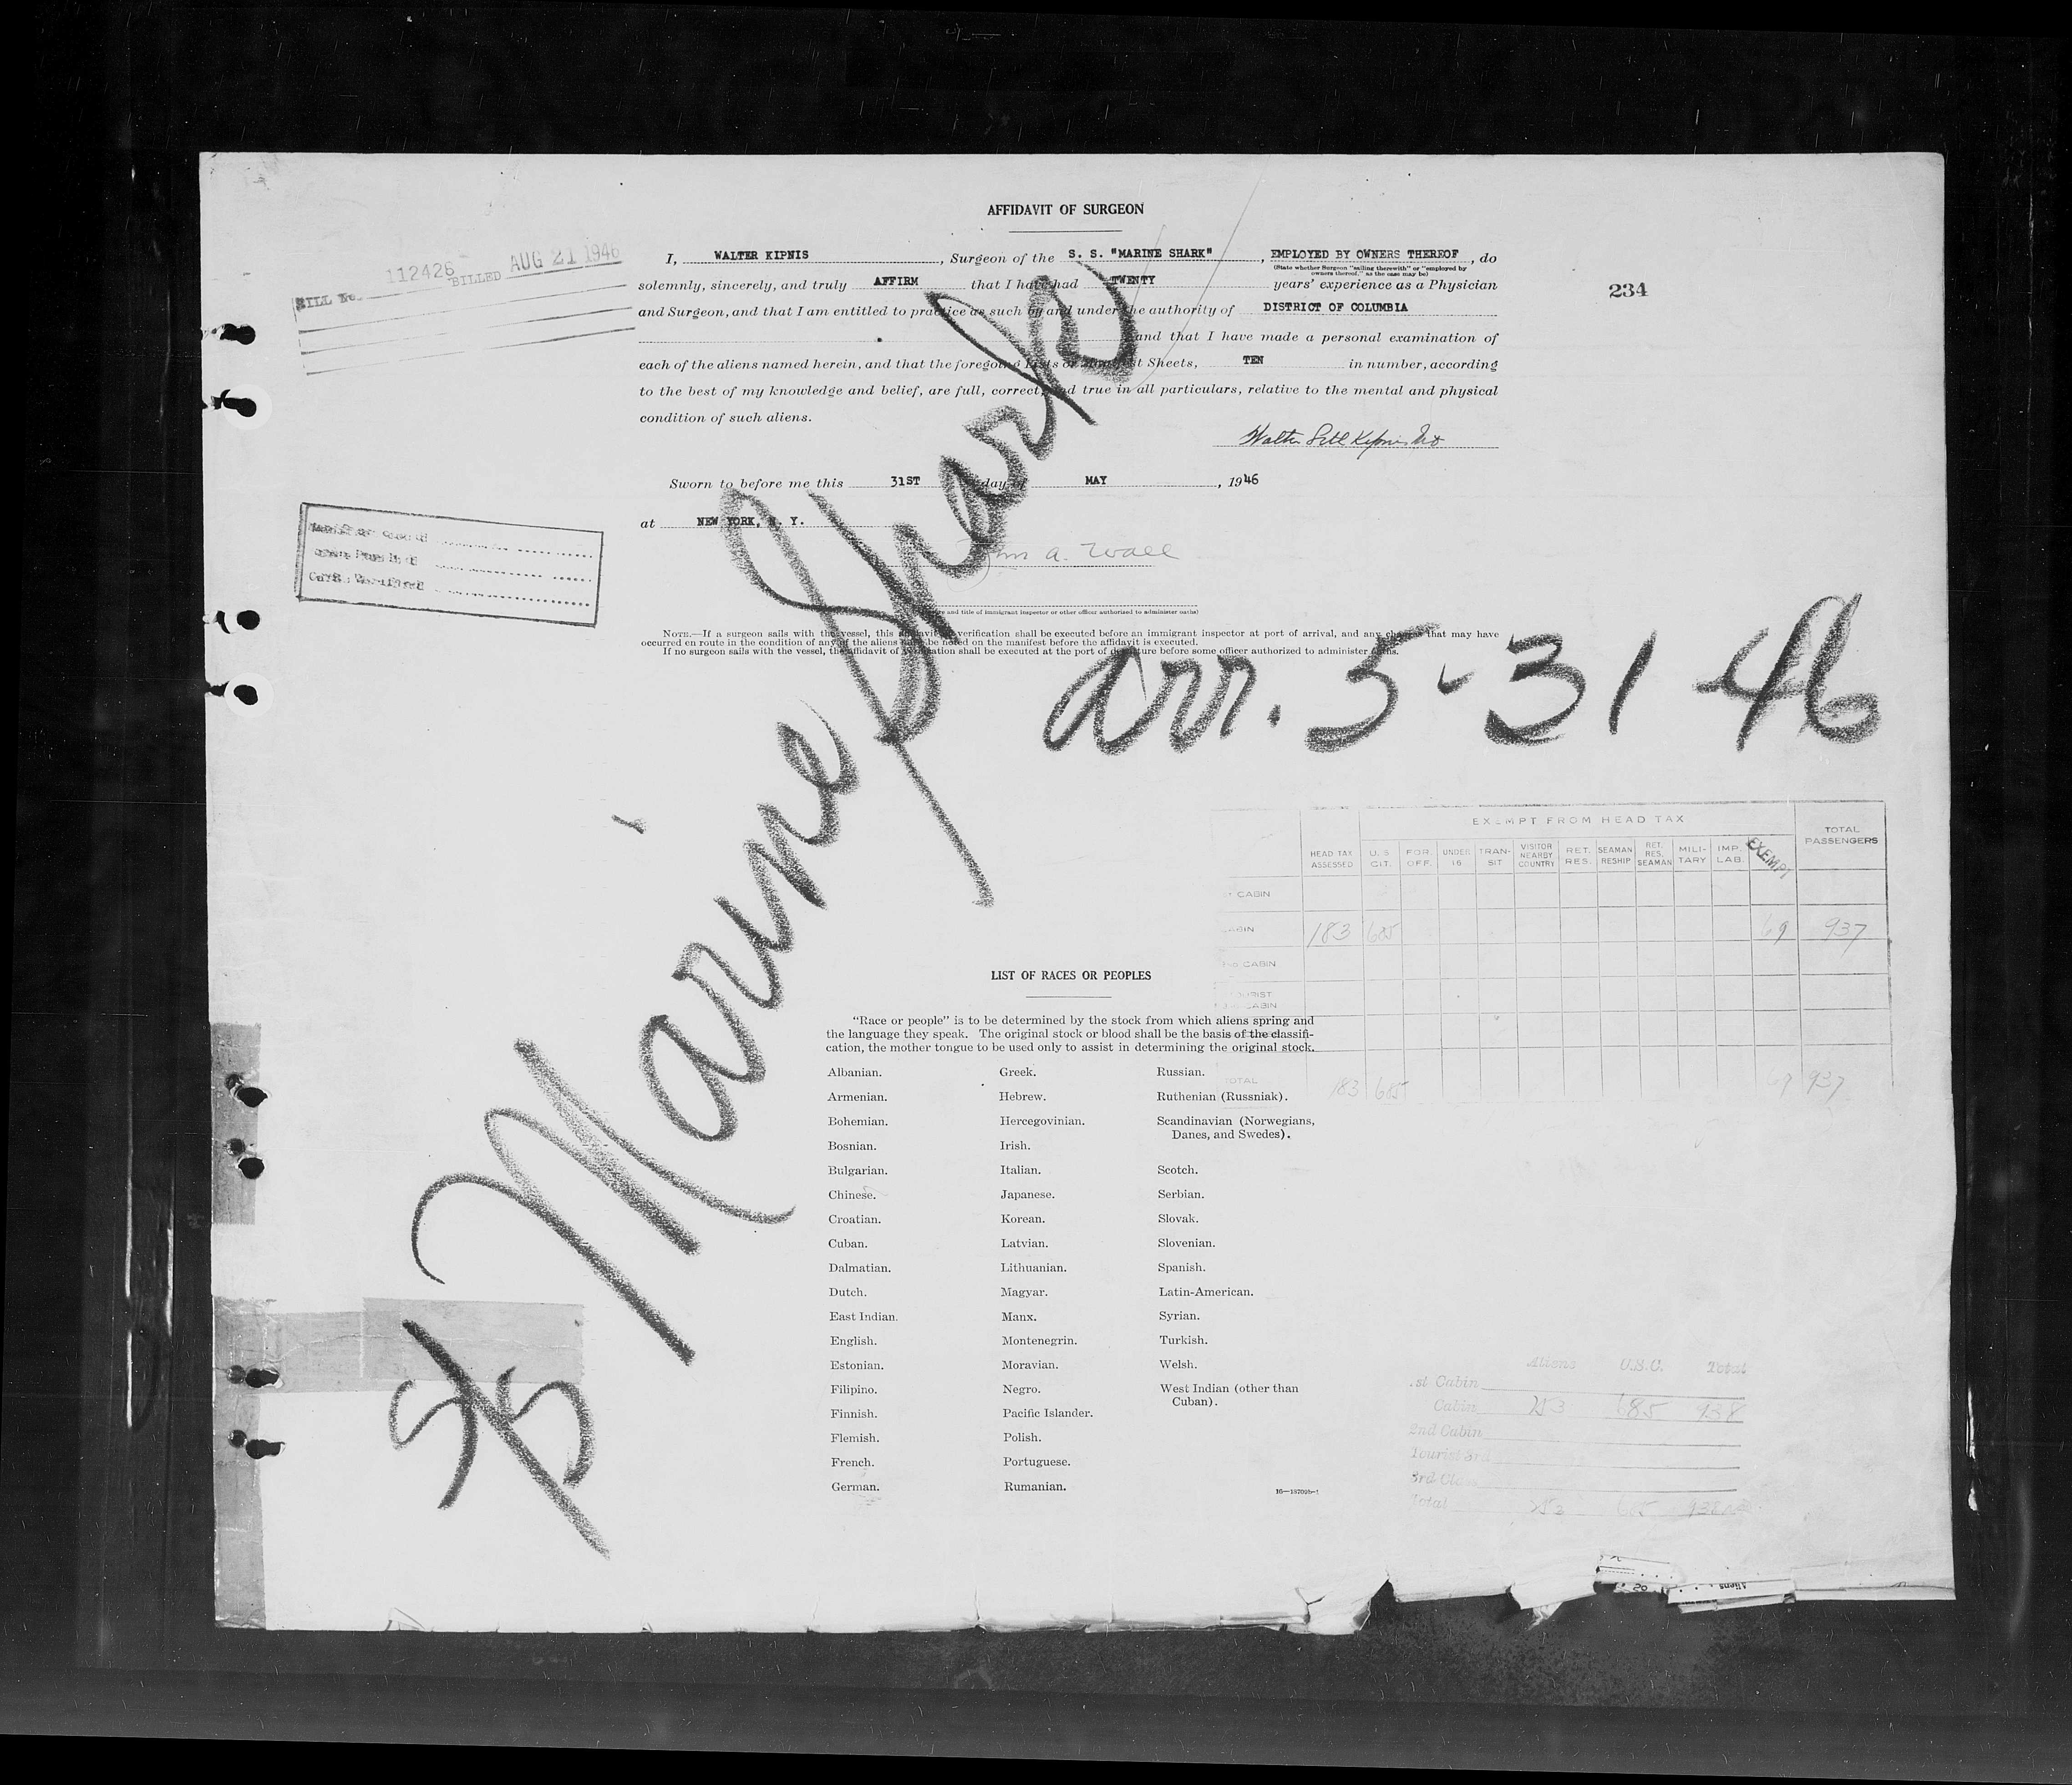 AFFIDAVIT OF SURGEON
234
BILL No. 112426 BILLED AUG 21 1946
I, WALTER KIPNIS, Surgeon of the S. S. "MARINE SHARK", EMPLOYED BY OWNERS THEREOF, do
(State whether Surgeon "sailing therewith" or "employed by
owners thereof," as the case may be)
solemnly, sincerely, and truly AFFIRM that I have had TWENTY years' experience as a Physician
and Surgeon, and that I am entitled to practice as such by and under the authority of DISTRICT OF COLUMBIA
and that I have made a personal examination of
each of the aliens named herein, and that the foregoing Lists or Manifest Sheets, TEN in number, according
to the best of my knowledge and belief, are full, correct, and true in all particulars, relative to the mental and physical
condition of such aliens.
Sworn to before me this 31ST day of MAY, 1946
at NEW YORK, N. Y.
a. Wall
and title of immigrant inspector or other officer authorized to administer oaths)
NOTE.—If a surgeon sails with the vessel, this affidavit of verification shall be executed before an immigrant inspector at port of arrival, and any changes that may have
occurred en route in the condition of any of the aliens must be noted on the manifest before the affidavit is executed.
If no surgeon sails with the vessel, the affidavit of verification shall be executed at the port of departure before some officer authorized to administer oaths.
S/S Marine Shark
arr. 5-31 46
EXEMPT FROM HEAD TAX
HEAD TAX ASSESSED U.S. CIT. FOR. OFF. UNDER 16 TRAN-SIT VISITOR NEARBY COUNTRY RET. RES. SEAMAN RESHIP RET. RES. SEAMAN MILI-TARY IMP. LAB. EXEMPT TOTAL PASSENGERS
CABIN
CABIN 183 685 69 937
CABIN
TOURIST
CABIN
TOTAL 183 685 69 937
LIST OF RACES OR PEOPLES
"Race or people" is to be determined by the stock from which aliens spring and
the language they speak. The original stock or blood shall be the basis of the classifi-
cation, the mother tongue to be used only to assist in determining the original stock.
Albanian.
Armenian.
Bohemian.
Bosnian.
Bulgarian.
Chinese.
Croatian.
Cuban.
Dalmatian.
Dutch.
East Indian.
English.
Estonian.
Filipino.
Finnish.
Flemish.
French.
German.
Greek.
Hebrew.
Hercegovinian.
Irish.
Italian.
Japanese.
Korean.
Latvian.
Lithuanian.
Magyar.
Manx.
Montenegrin.
Moravian.
Negro.
Pacific Islander.
Polish.
Portuguese.
Rumanian.
Russian.
Ruthenian (Russniak).
Scandinavian (Norwegians,
Danes, and Swedes).
Scotch.
Serbian.
Slovak.
Slovenian.
Spanish.
Latin-American.
Syrian.
Turkish.
Welsh.
West Indian (other than
Cuban).
Aliens U.S.C. Total
st Cabin
Cabin 253 685 938
2nd Cabin
Tourist 3rd
3rd
Total 253 685 938